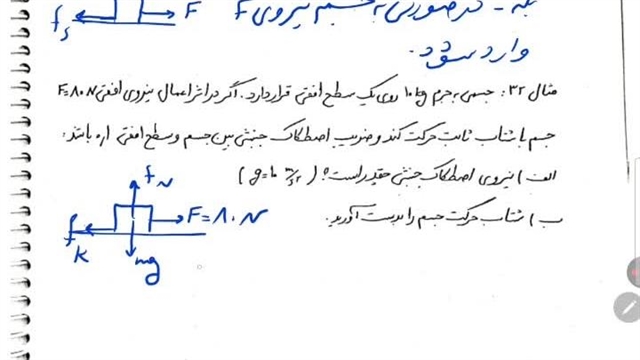 بله - در صورتی به جسم نیروی F
وارد شود.
fs F
مثال ۳۲: جسمی به جرم ۱۰ kg روی یک سطح افقی قرار دارد. اگر در اثر اعمال نیروی افقی F=۸۰ N
جسم با شتاب ثابت حرکت کند و ضریب اصطکاک جنبشی بین جسم و سطح افقی ۰/۱ باشد:
الف) نیروی اصطکاک جنبشی چقدر است؟ (g=۱۰ m/s²)
ب) شتاب حرکت جسم را بدست آورید.
fN
F=۸۰ N
fk
mg